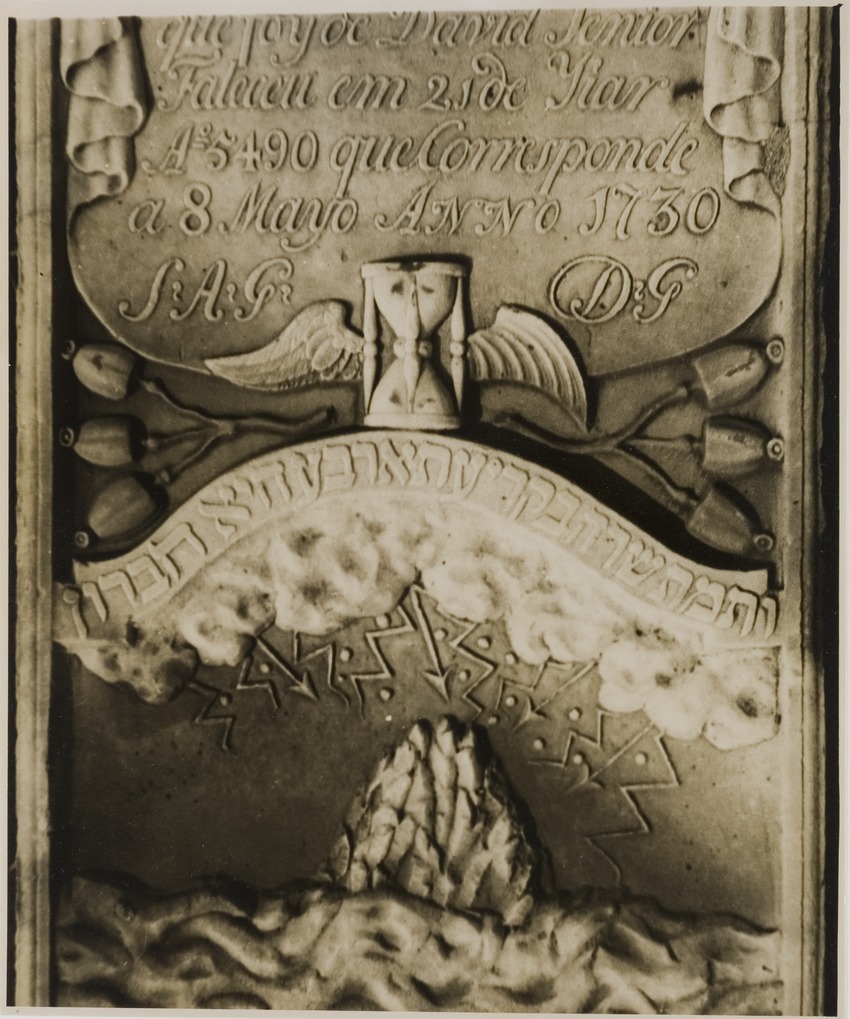 que foy de David Senior
Faleceu em 21 de Yiar
Aº 5490 que Corresponde
a 8 Mayo ANNO 1730
S:A:G: D:G
ותמת שרה בקרית ארבע היא חברון